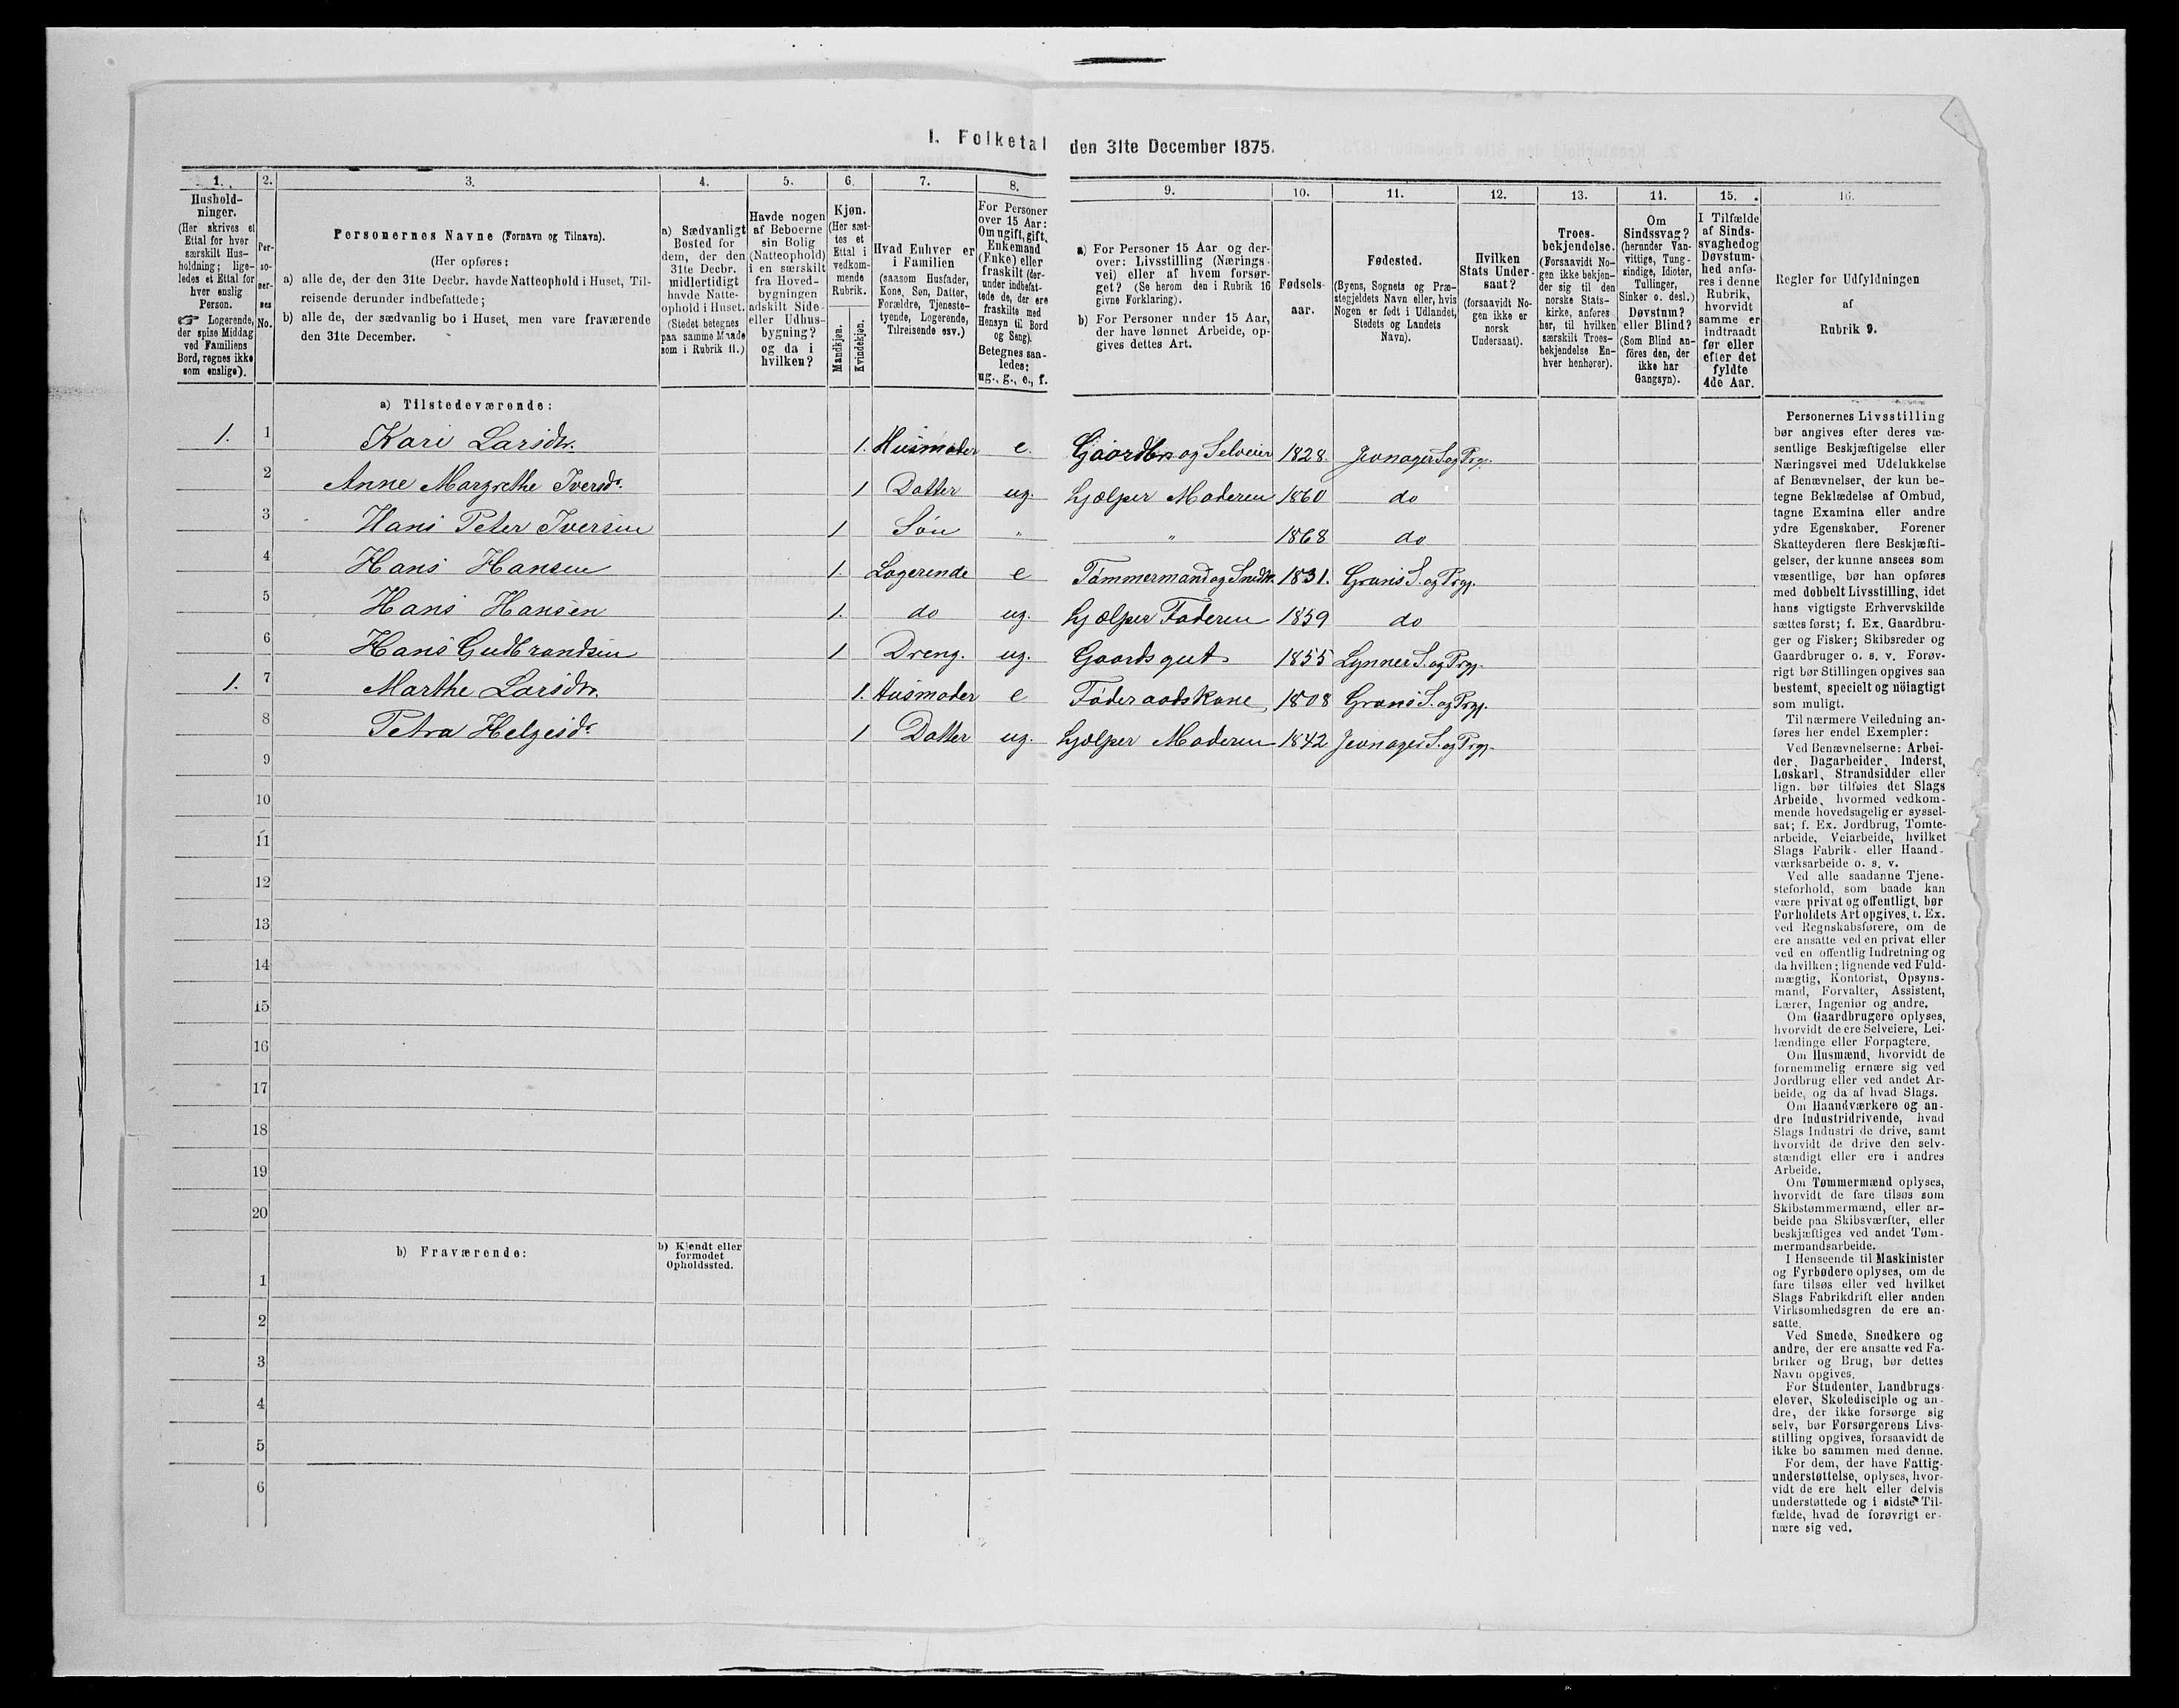 1. Folketal den 31te December 1875.
1. 2. 3. 4. 5. 6. 7. 8. 9. 10. 11. 12. 13. 14. 15. 16.
Hushold-
ninger.
(Her skrives et
Ettal for hver
særskilt Hus-
holdning; lige-
ledes et Ettal for
hver enslig
Person.
☞ Logerende,
der spise Middag
ved Familiens
Bord, regnes ikke
som enslige).
Per-
so-
ner-
nes
No.
Personernes Navne (Fornavn og Tilnavn).
(Her opføres:
a) alle de, der den 31te Decbr. havde Natteophold i Huset, Til-
reisende derunder indbefattede;
b) alle de, der sædvanlig bo i Huset, men vare fraværende
den 31te December.
a) Sædvanligt
Bosted for
dem, der den
31te Decbr.
midlertidigt
havde Natte-
ophold i Huset.
(Stedet betegnes
paa samme Maade
som i Rubrik 11.)
Havde nogen
af Beboerne
sin Bolig
(Natteophold)
i en særskilt
fra Hoved-
bygningen
adskilt Side-
eller Udhus-
bygning?
og da i
hvilken?
Kjøn.
(Her sæt-
tes et
Ettal i
vedkom-
mende
Rubrik.
Mandkjøn.
Kvindekjøn.
Hvad Enhver er
i Familien
(saasom Husfader,
Kone, Søn, Datter,
Forældre, Tjeneste-
tyende, Logerende,
Tilreisende osv.)
For Personer
over 15 Aar:
Om ugift, gift,
Enkemand
(Enke) eller
fraskilt (der-
under indbefat-
tede de, der ere
fraskilte med
Hensyn til Bord
og Seng).
Betegnes saa-
ledes:
ug., g., e., f.
a) For Personer 15 Aar og der-
over: Livsstilling (Nærings-
vei) eller af hvem forsør-
get? (Se herom den i Rubrik 16
givne Forklaring).
b) For Personer under 15 Aar,
der have lønnet Arbeide, op-
gives dettes Art.
Fødsels-
aar.
Fødested.
(Byens, Sognets og Præ-
stegjeldets Navn eller, hvis
Nogen er født i Udlandet,
Stedets og Landets
Navn).
Hvilken
Stats Under-
saat?
(forsaavidt No-
gen ikke er
norsk
Undersaat).
Troes-
bekjendelse.
(Forsaavidt No-
gen ikke bekjen-
der sig til den
norske Stats-
kirke, anføres
her, til hvilken
særskilt Troes-
bekjendelse En-
hver henhører).
Om
Sindssvag?
(herunder Van-
vittige, Tung-
sindige, Idioter,
Tullinger,
Sinker o. desl.)
Døvstum?
eller Blind?
(Som Blind an-
föres den, der
ikke har
Gangsyn).
I Tilfælde
af Sinds-
svaghed og
Døvstum-
hed anfø-
res i denne
Rubrik,
hvorvidt
samme er
indtraadt
før eller
efter det
fyldte
4de Aar.
Regler for Udfyldningen
af
Rubrik 9.
a) Tilstedeværende:
1. 1 Kari Larsdtr. 1. Husmoder e. Gaardbr. og Selveier 1828. Jevnager S. og Prgj.
2 Anne Margrethe Iversdr. 1 Datter ug. hjælper Moderen 1860 do
3 Hans Peter Iversen 1 Søn " " 1868 do
4 Hans Hansen 1 Logerende e Tømmermand og Snedk. 1831. Grans S. og Prgj.
5 Hans Hansen 1. do ug. hjælper Faderen 1859 do
6 Hans Gudbrandsen 1 Dreng. ug. Gaardsgut 1855 Lynner S. og Prgj.
1. 7 Marthe Larsdtr. 1. Husmoder e Føderaadskone 1808 Grans S. og Prgj.
8 Petra Helgesdr. 1 Datter ug. hjælper Moderen 1842 Jevnager S. og Prgj.
9
10
11
12
13
14
15
16
17
18
19
20
b) Fraværende:
b) Kjendt eller
formodet
Opholdssted.
1
2
3
4
5
6
Personernes Livsstilling
bør angives efter deres væ-
sentlige Beskjæftigelse eller
Næringsvei med Udelukkelse
af Benævnelser, der kun be-
tegne Beklædelse af Ombud,
tagne Examina eller andre
ydre Egenskaber. Forener
Skatteyderen flere Beskjæfti-
gelser, der kunne ansees som
væsentlige, bør han opføres
med dobbelt Livsstilling, idet
hans vigtigste Erhvervskilde
sættes først; f. Ex. Gaardbru-
ger og Fisker; Skibsreder og
Gaardbruger o. s. v. Forøv-
rigt bør Stillingen opgives saa
bestemt, specielt og nöiagtigt
som muligt.
Til nærmere Veiledning an-
føres her endel Exempler:
Ved Benævnelserne: Arbei-
der, Dagarbeider, Inderst,
Løskarl, Strandsidder eller
lign. bør tilføies det Slags
Arbeide, hvormed vedkom-
mende hovedsagelig er syssel-
sat; f. Ex. Jordbrug, Tomte-
arbeide, Veiarbeide, hvilket
Slags Fabrik- eller Haand-
værksarbeide o. s. v.
Ved alle saadanne Tjene-
steforhold, som baade kan
være privat og offentligt, bør
Forholdets Art opgives, t. Ex.
ved Regnskabsførere, om de
ere ansatte ved en privat eller
ved en offentlig Indretning og
da hvilken; lignende ved Fuld-
mægtig, Kontorist, Opsyns-
mand, Forvalter, Assistent,
Lærer, Ingeniør og andre.
Om Gaardbrugere oplyses,
hvorvidt de ere Selveiere, Lei-
lændinge eller Forpagtere.
Om Husmænd, hvorvidt de
fornemmelig ernære sig ved
Jordbrug eller ved andet Ar-
beide, og da af hvad Slags.
Om Haandværkere og an-
dre Industridrivende, hvad
Slags Industri de drive, samt
hvorvidt de drive den selv-
stændigt eller ere i andres
Arbeide.
Om Tømmermænd oplyses,
hvorvidt de fare tilsøs som
Skibstømmermænd, eller ar-
beide paa Skibsværfter, eller
beskjæftiges ved andet Tøm-
mermandsarbeide.
I Henseende til Maskinister
og Fyrbødere oplyses, om de
fare tilsøs eller ved hvilket
Slags Fabrikdrift eller anden
Virksomhedsgren de ere an-
satte.
Ved Smede, Snedkere og
andre, der ere ansatte ved Fa-
briker og Brug, bør dettes
Navn opgives.
For Studenter, Landbrugs-
elever, Skoledisciple og an-
dre, der ikke forsørge sig
selv, bør Forsørgerens Livs-
stilling opgives, forsaavidt de
ikke bo sammen med denne.
For dem, der have Fattig-
understøttelse, oplyses, hvor-
vidt de ere helt eller delvis
understøttede og i sidste Til-
fælde, hvad de forøvrigt er-
nære sig ved.